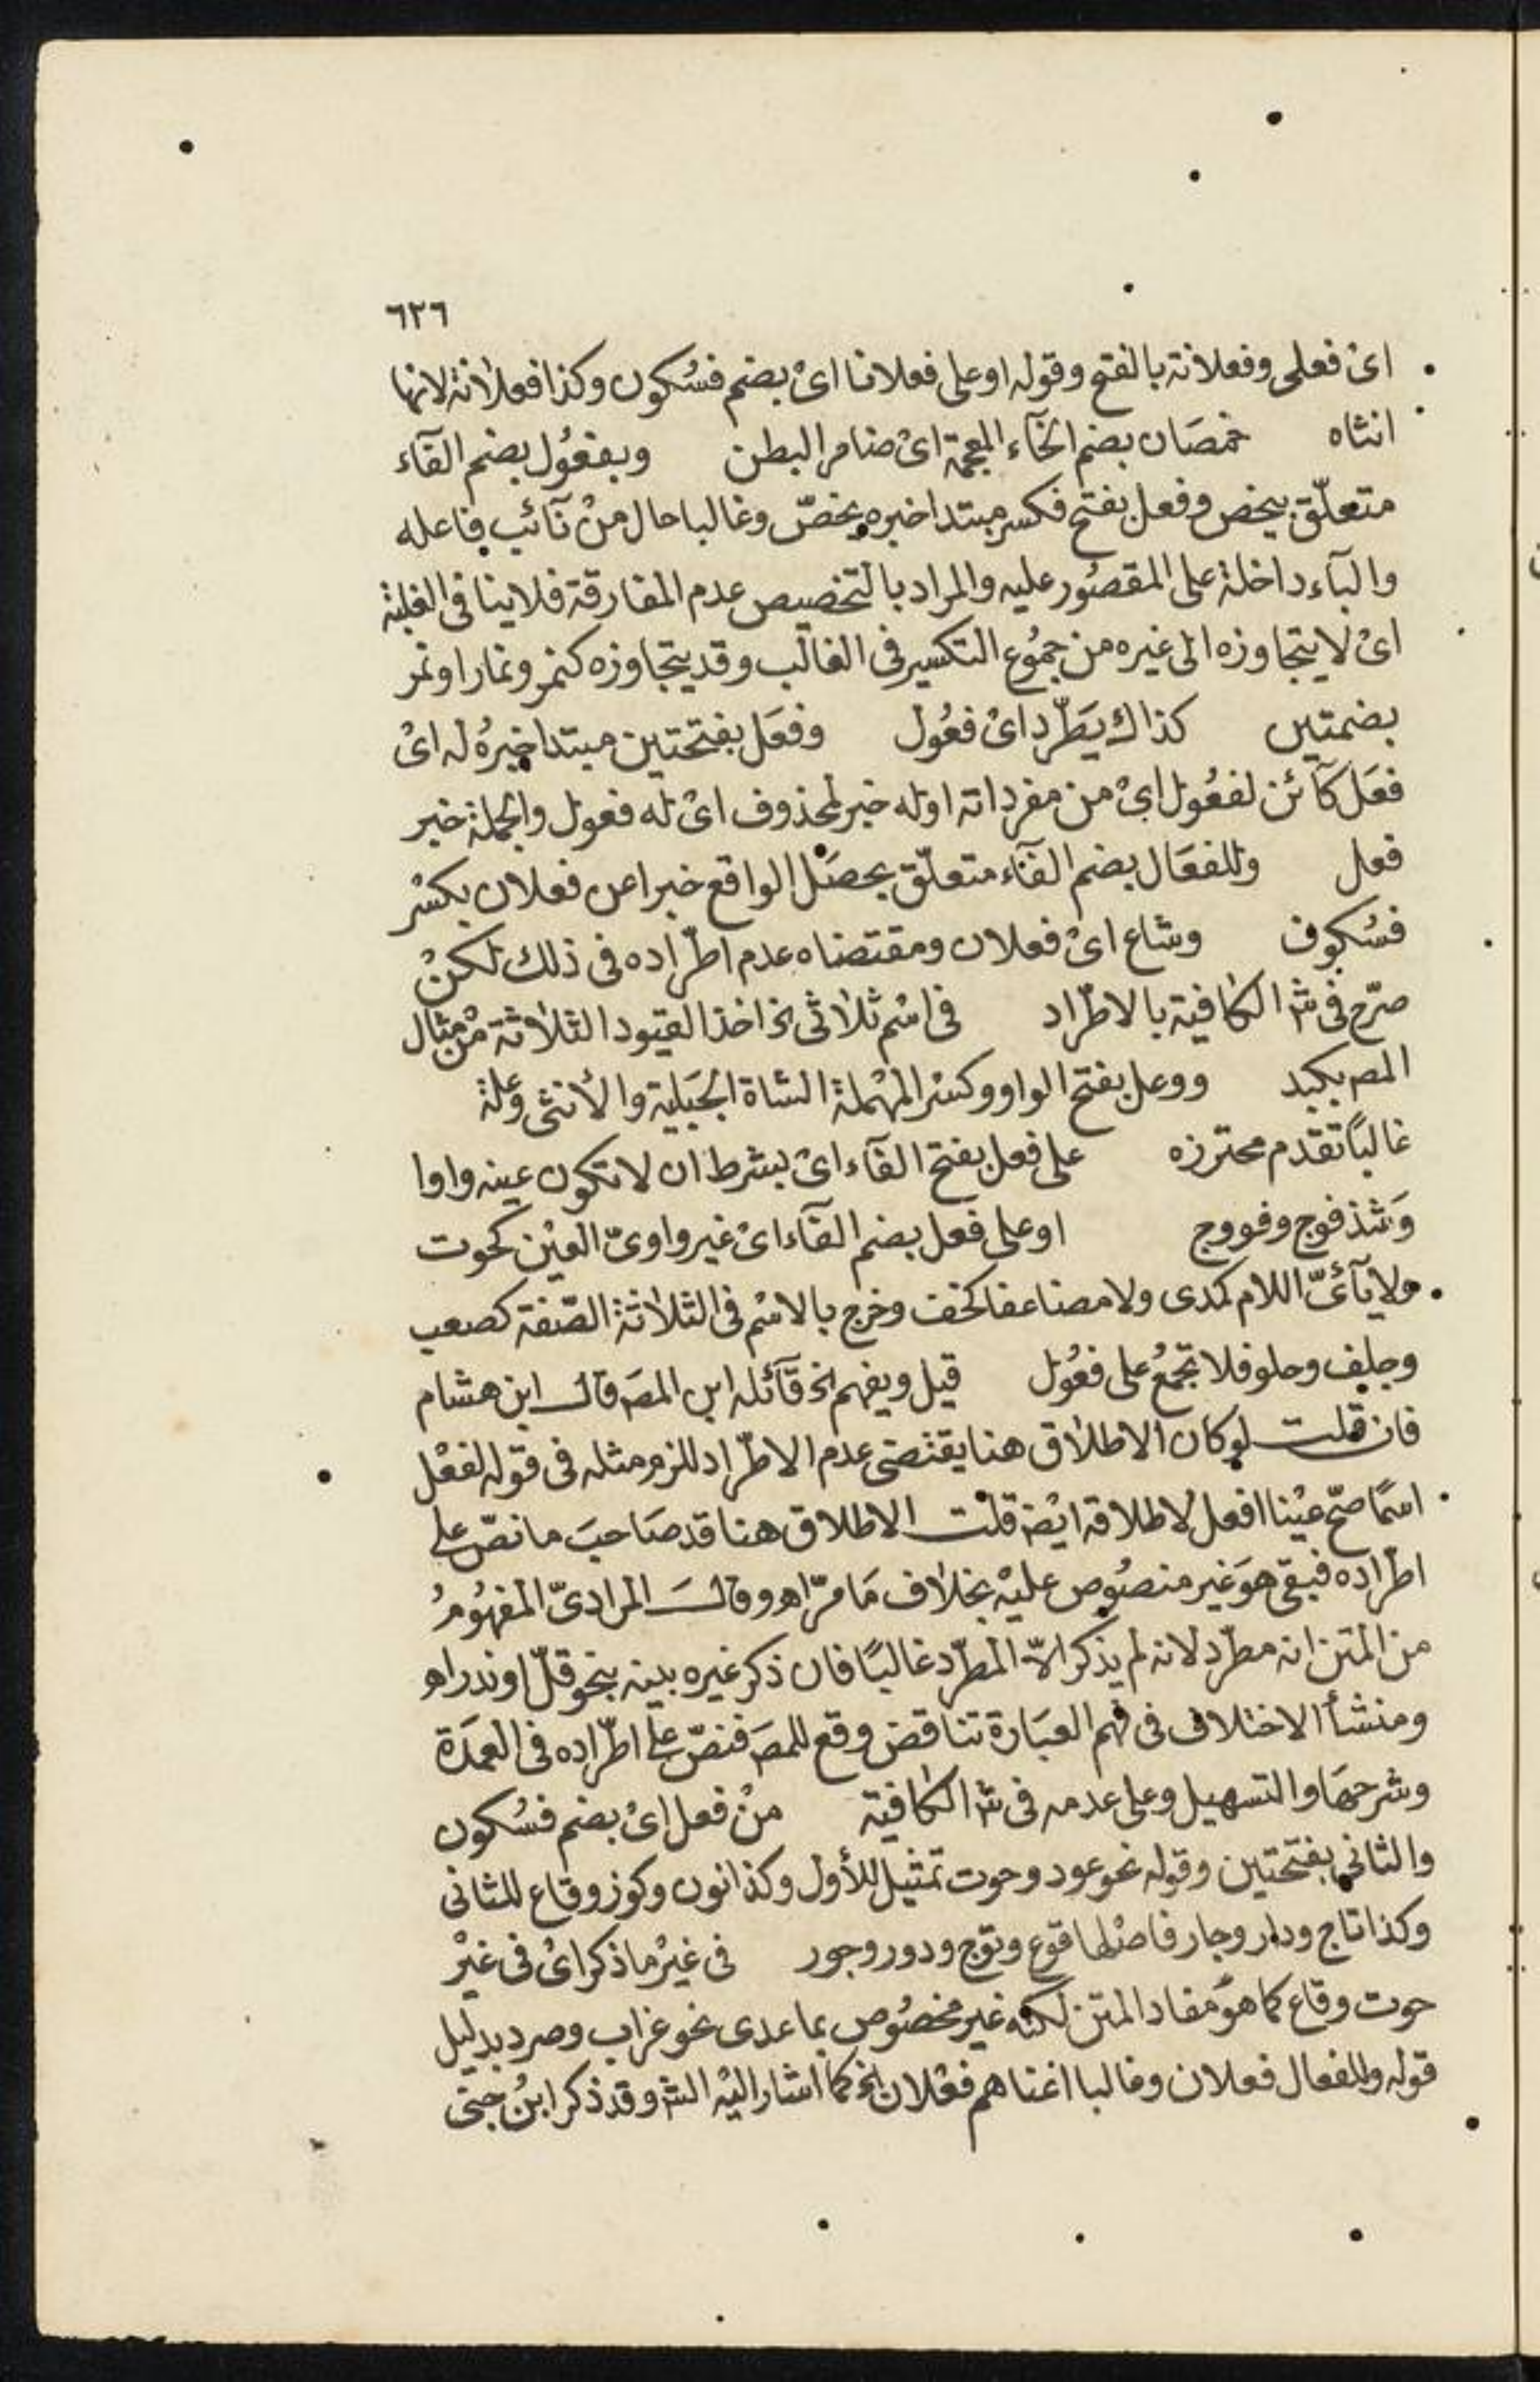 ٦٢٦
اىْ فعلى وفعلانة بالفتح وقوله اوعلى فعلانا اىْ بضم فسُكون وكذا فعلانة لانها
انثاه خمصَان بضم الخآء المعجمة اىْ ضامر البطن وبفعُول بضم الفآء
متعلّق بيخص وفعل بفتح فكسر مبتدا خبره يخصّ وغالبا حال منْ نآئب فاعله
والبآء داخلة على المقصُور عليه والمراد بالتخصيص عدم المفارقة فلاينافى الغلبة
اىْ لا يتجاوزه الى غيره من جمُوع التكسير فى الغالب وقد يتجاوزه كنمر ونمار اونمر
بضمتين كذاك يَطّرد اىْ فعُول وفعَل بفتحتين مبتدا خبرُه له اىْ
فعَل كآئن لفعُول اىْ من مفرداته اوله خبر لمحذوف اىْ له فعول والجملة خبر
فعل وللفعَال بضم الفآء متعلّق بحصَل الواقع خبرا عن فعلان بكسْر
فسُكوف وشاع اىْ فعلان ومقتضاه عدم اطّراده فى ذلك لكنْ
صرّح فى شر الكافية بالاطّراد فى اسْم ثلاثى الخ اخذ القيود الثلاثة منْ مثال
المص بكبد ووعل بفتح الواو وكسْر المهْملة الشاة الجَبَلية والأنثى وعلة
غالبًا تقدم محترزه على فعل بفتح الفآء اىْ بشرط ان لا تكون عينه واوا
وَشذ فوج وفووج اوعلى فعل بضم الفآء اىْ غير واوىّ العيْن كحوت
ولا يآئىّ اللام كمدى ولا مضاعفا كخف وخرج بالاسْم فى الثلاثة الصّفة كصعب
وجلف وحلو فلا تجمعُ على فعُول قيل ويفهم الخ قآئله ابن المصَ قال ابن هشام
فان قلت لوكان الاطلاق هنا يقتضى عدم الاطّراد للزم مثله فى قوله لفعْل
اسمًا صحّ عيْنا افعل لاطلاقه ايْضا قلت الاطلاق هنا قد صَاحبَ ما نصّ على
اطّراده فبقى هوَ غير منصُوص عليْه بخلاف مَا مرّ اهو وقالَ المرادىّ المفهُومُ
من المتن انه مطّرد لانه لم يذكر الاّ المطّرد غالبًا فان ذكر غيره بينه بنحو قلّ اوندر اهـ
ومنشأ الاختلاف فى فهم العبَارة تناقض وقع للمصَ فنصّ على اطّراده فى العمدَة
وشرحهَا والتسهيل وعلى عدمه فى شر الكافية منْ فعل اىْ بضم فسُكون
والثانى بفتحتين وقوله نحو عود وحوت تمثيل للأول وكذا نون وكوز وقاع للثانى
وكذا تاج ودار وجار فاصْلها قوع وتوج ودور وجور فى غيْر ما ذكر اىْ فى غيْر
حوت وقاع كما هوَ مفاد المتن لكنّه غير مخصُوص بما عدى نحو غراب وصرد بدليل
قوله وللفعال فعلان وغالبا اغناهم فعْلان الخ كما اشار اليْه الش وقد ذكر ابنُ جنى